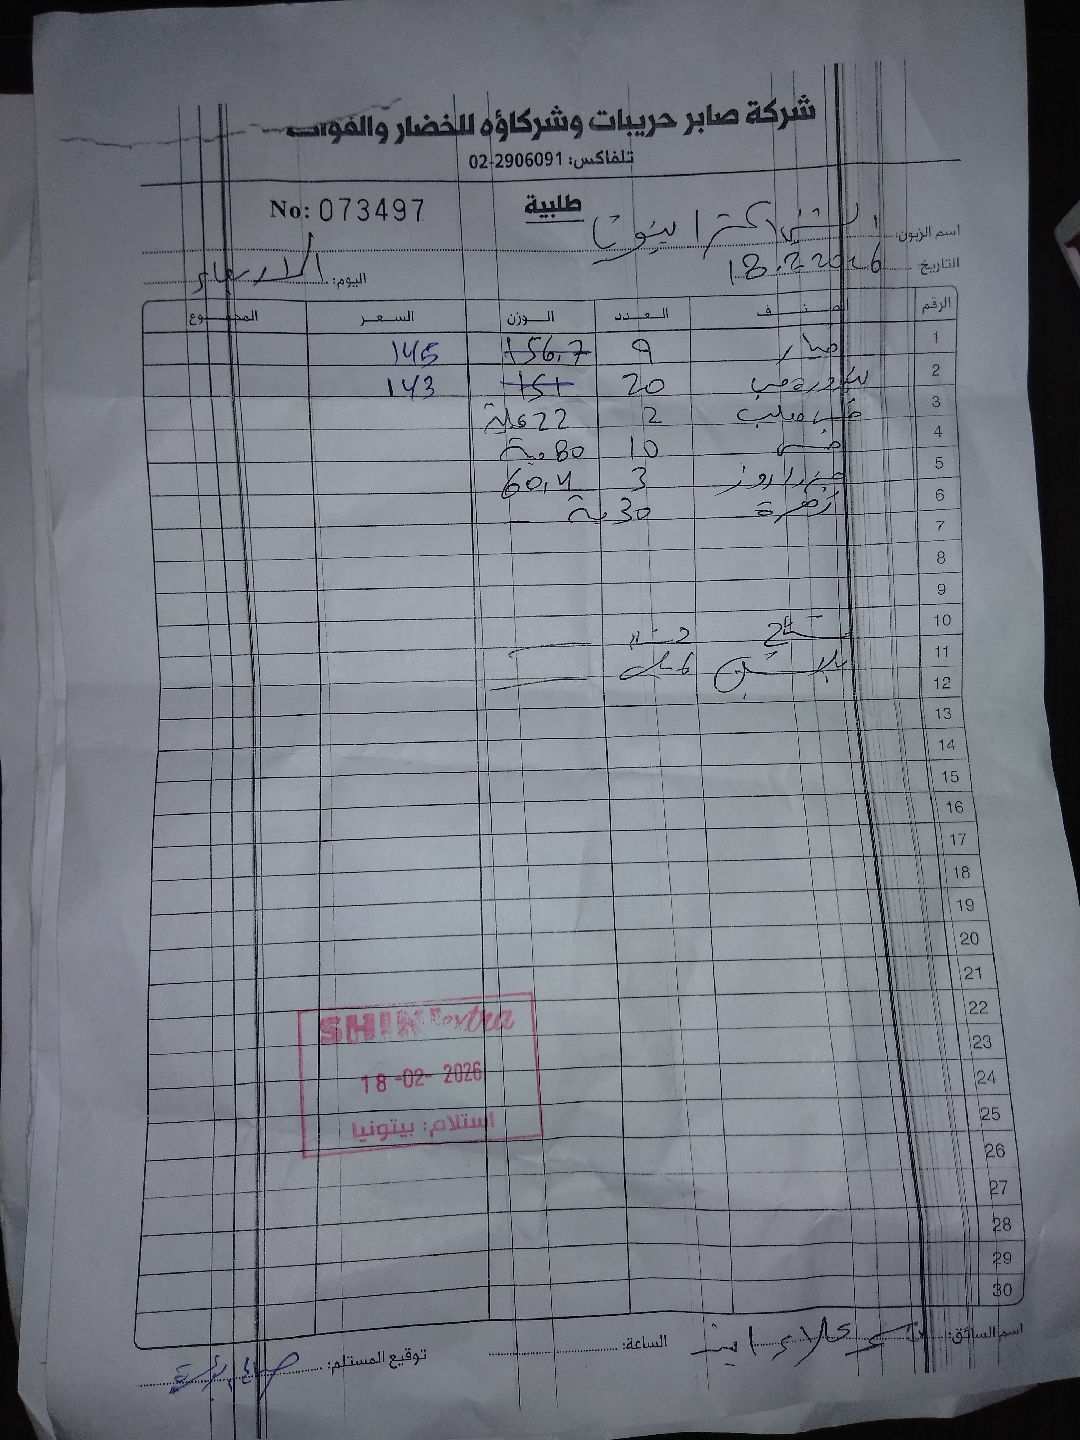 شركة صابر حريبات وشركاؤه للخضار والفواكه
تلفاكس: 02-2906091
No: 073497
طلبية
اسم الزبون: اكسترا بيتونيا
التاريخ: 18.2.2026
اليوم: الاربعاء
الرقم صنف العدد الوزن السعر المجموع
1 خيار 9 156,7 145
2 بندورة حب 20 151 143
3 2 22 علبة
4 خس 10 80 حبة
5 3 60,4
6 زهرة 30 حبة
7
8
9
10
11
12
13
14
15
16
17
18
19
20
21
22
23
24
25
26
27
28
29
30
SHINI extra
18-02-2026
استلام: بيتونيا
اسم السائق: علاء
الساعة:
توقيع المستلم: